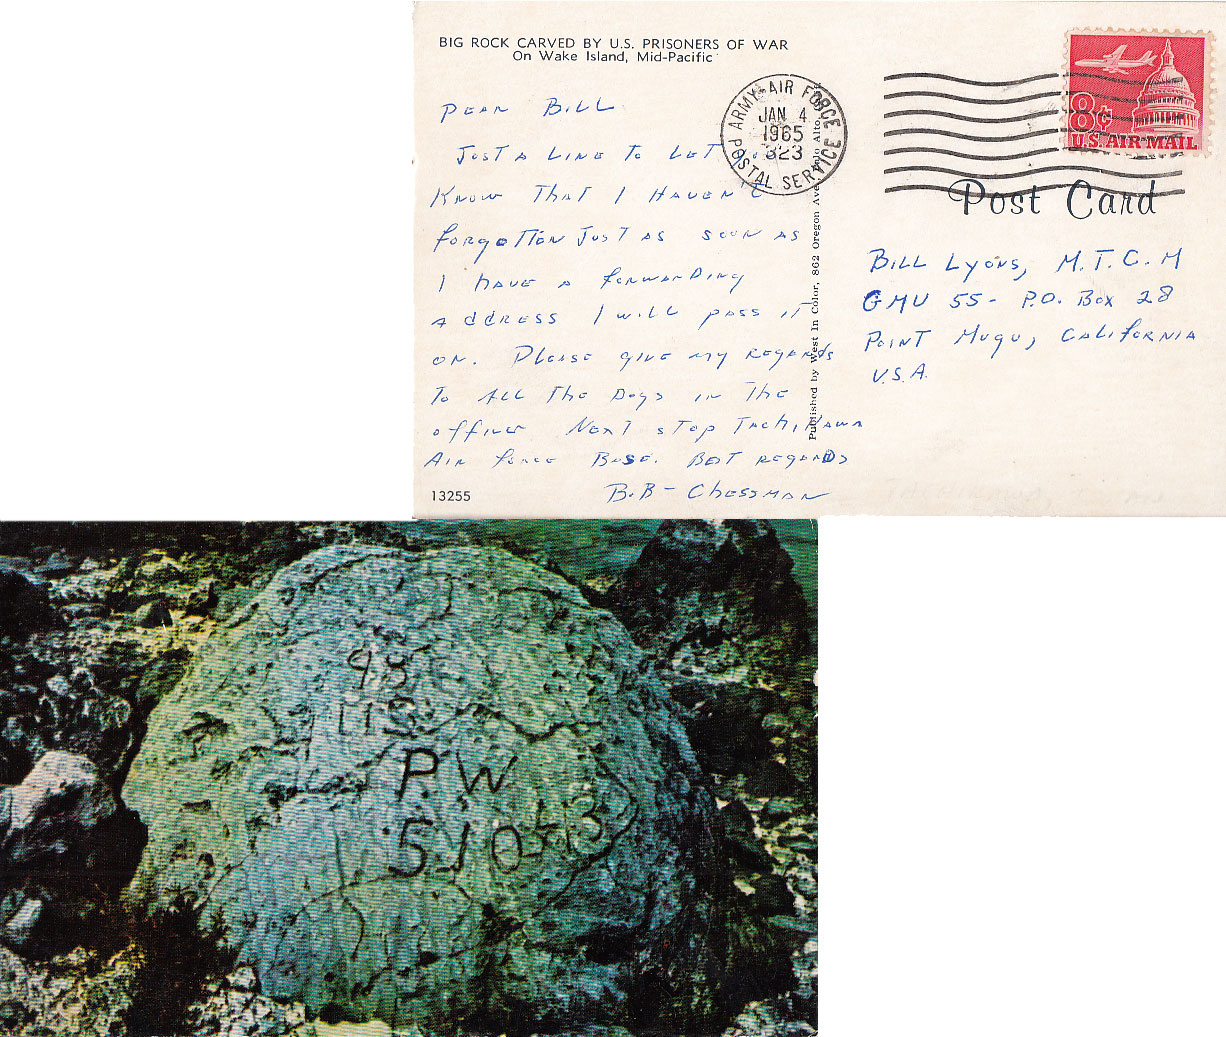 BIG ROCK CARVED BY U.S. PRISONERS OF WAR
On Wake Island, Mid-Pacific
DEAR BILL
JUST A LINE TO LET
KNOW THAT I HAVEN'T
FORGOTTEN JUST AS SOON AS
I HAVE A FORWARDING
ADDRESS I WILL PASS IT
ON. PLEASE GIVE MY REGARDS
TO ALL THE BOYS IN THE
OFFICE NEXT STOP TACHIKAWA
AIR FORCE BASE. BEST REGARDS
BOB - CHESSMAN
13255
ARMY-AIR FORCE POSTAL SERVICE
JAN 4
1965
823
Published by West In Color, 862 Oregon Ave. Palo Alto
8¢
U.S. AIR MAIL
Post Card
BILL LYONS, M.T.C.M
GMU 55 - P.O. BOX 28
POINT MUGU, CALIFORNIA
U.S.A.
98
US
PW
5.10.43